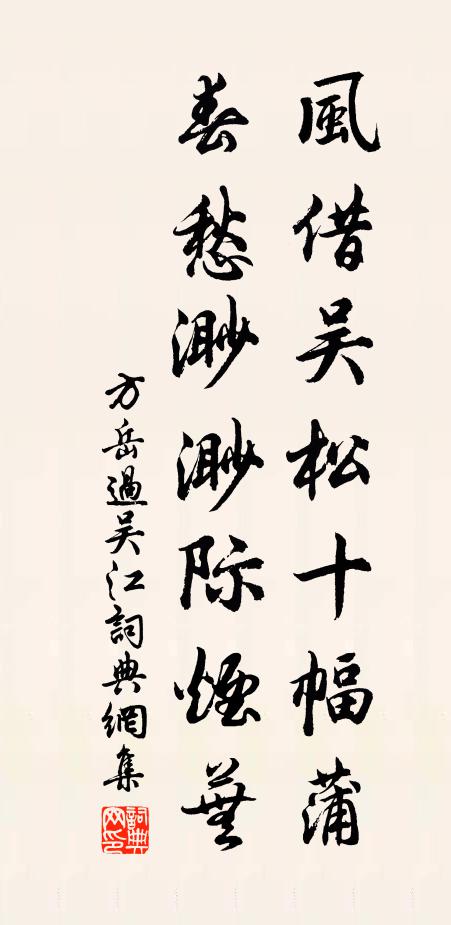 風借吴松十幅蒲
春愁渺渺际煙蕪
方岳過吴江詞典網集
詞典網印